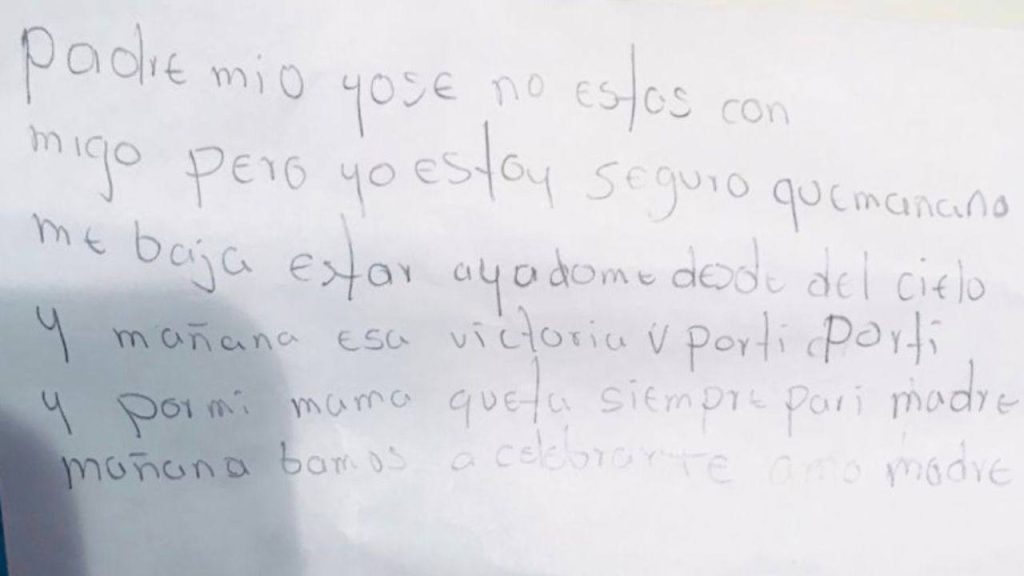 padre mio yose no estas con
migo pero yo estoy seguro quemañana
me baja estar ayadome desde del cielo
y mañana esa victoria v porti porti
y pormi mama queta siempre pari madre
mañana bamos a celebrar te amo madre